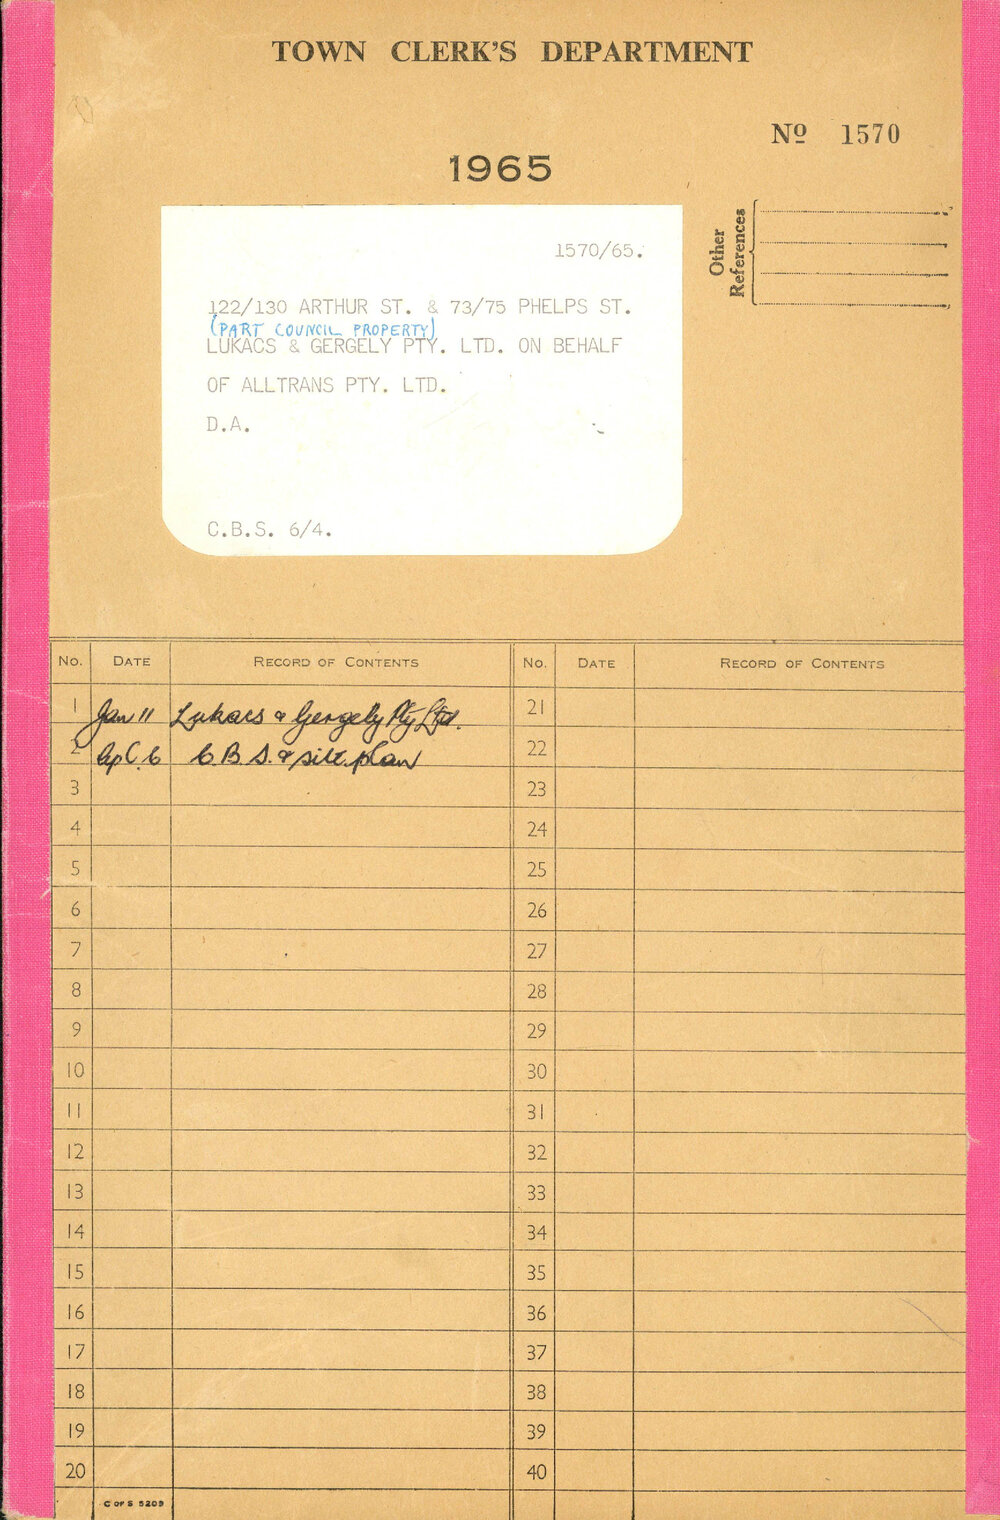 TOWN CLERK'S DEPARTMENT
Nº 1570
1965
Other
References
1570/65.
122/130 ARTHUR ST. & 73/75 PHELPS ST.
(PART COUNCIL PROPERTY)
LUKACS & GERGELY PTY. LTD. ON BEHALF
OF ALLTRANS PTY. LTD.
D.A.
C.B.S. 6/4.
No. DATE RECORD OF CONTENTS No. DATE RECORD OF CONTENTS
1 Jan 11 Lukacs & Gergely Pty Ltd. 21
2 Apl. 6 C.B.S. & site plan 22
3 23
4 24
5 25
6 26
7 27
8 28
9 29
10 30
11 31
12 32
13 33
14 34
15 35
16 36
17 37
18 38
19 39
20 40
C OF S 5209